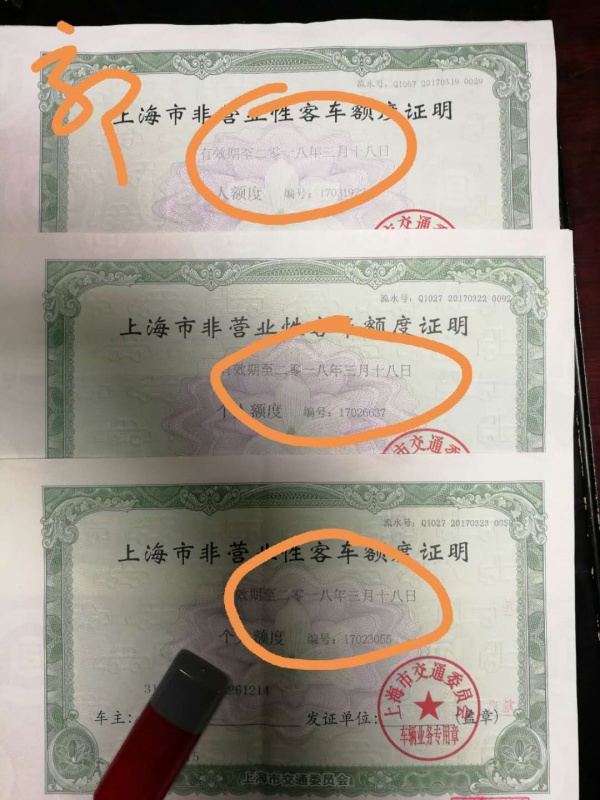 流水号：Q1067 20170319 0029
上海市非营业性客车额度证明
有效期至二零一八年三月十八日
人额度 编号：1703192
市交通委员
流水号：Q1027 20170322 0092
上海市非营业性客车额度证明
有效期至二零一八年三月十八日
个人额度 编号：17026637
市交通委员
流水号：Q1027 20170323 005
上海市非营业性客车额度证明
效期至二零一八年三月十八日
个人额度 编号：17023055
31 261214
车主： 发证单位： （盖章）
上海市交通委员会
车辆业务专用章
上海市交通委员会